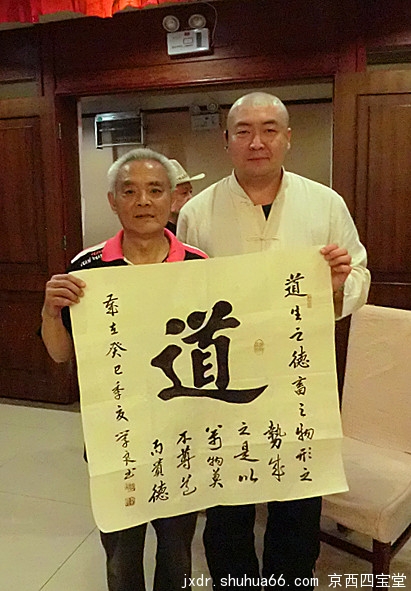 道生之德畜之物形之
勢成
之是以
萬物莫
不尊道
而貴德
道
歲在癸巳季
jxdr.shuhua66.com 京西四宝堂